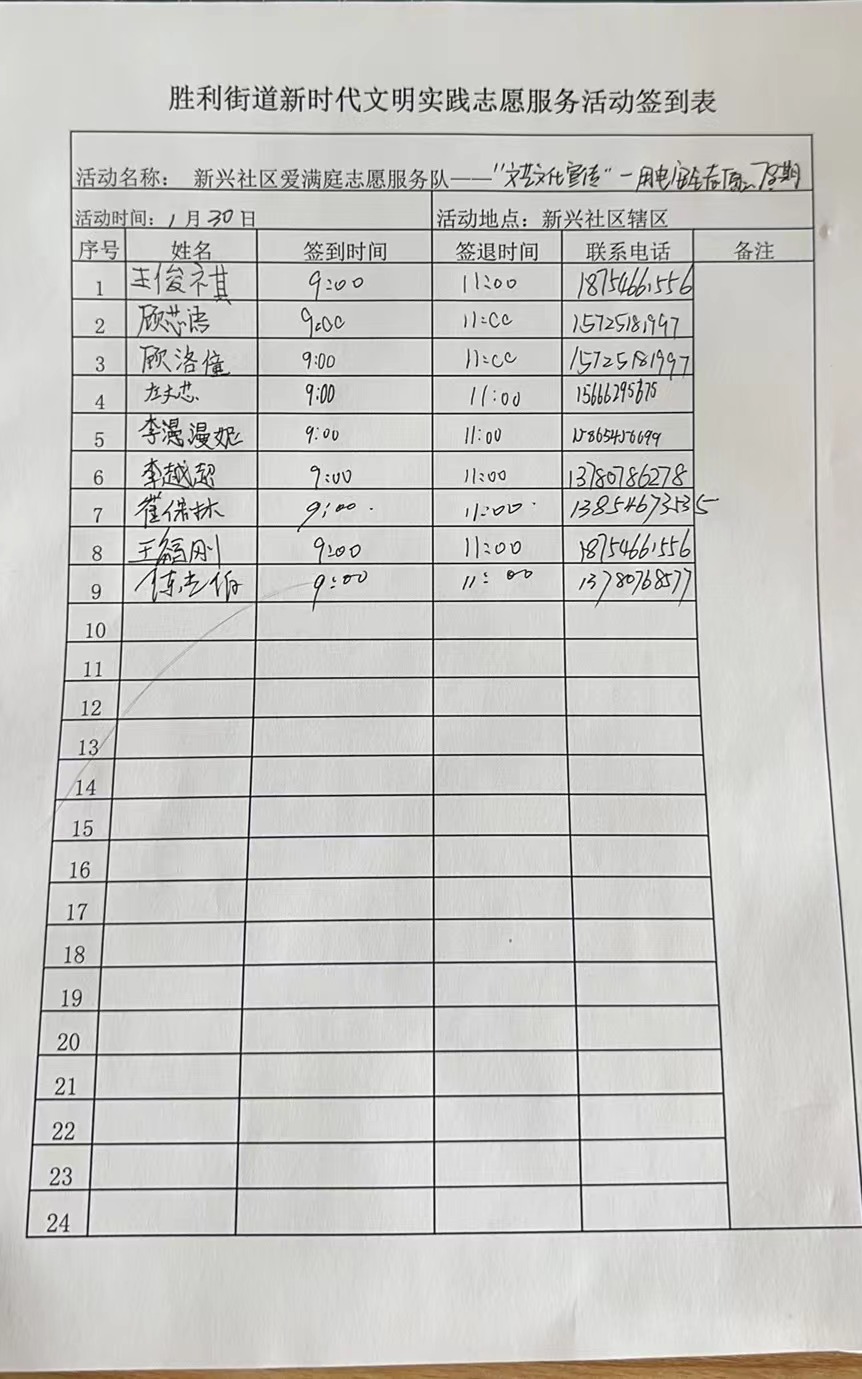 胜利街道新时代文明实践志愿服务活动签到表
活动名称: 新兴社区爱满庭志愿服务队——"文艺文化宣传"-用电安全
活动时间: 1月30日 活动地点: 新兴社区辖区
序号 姓名 签到时间 签退时间 联系电话 备注
1 王俊祺 9:00 11:00 18754661556
2 顾芯语 9:00 11:00 15725181997
3 顾洛僮 9:00 11:00 15725181997
4 9:00 11:00 15666295675
5 李漫妮 9:00 11:00 15865456699
6 李越超 9:00 11:00 13780786278
7 崔保林 9:00 11:00 13854673535
8 王福刚 9:00 11:00 18754661556
9 9:00 11:00 13780768577
10
11
12
13
14
15
16
17
18
19
20
21
22
23
24